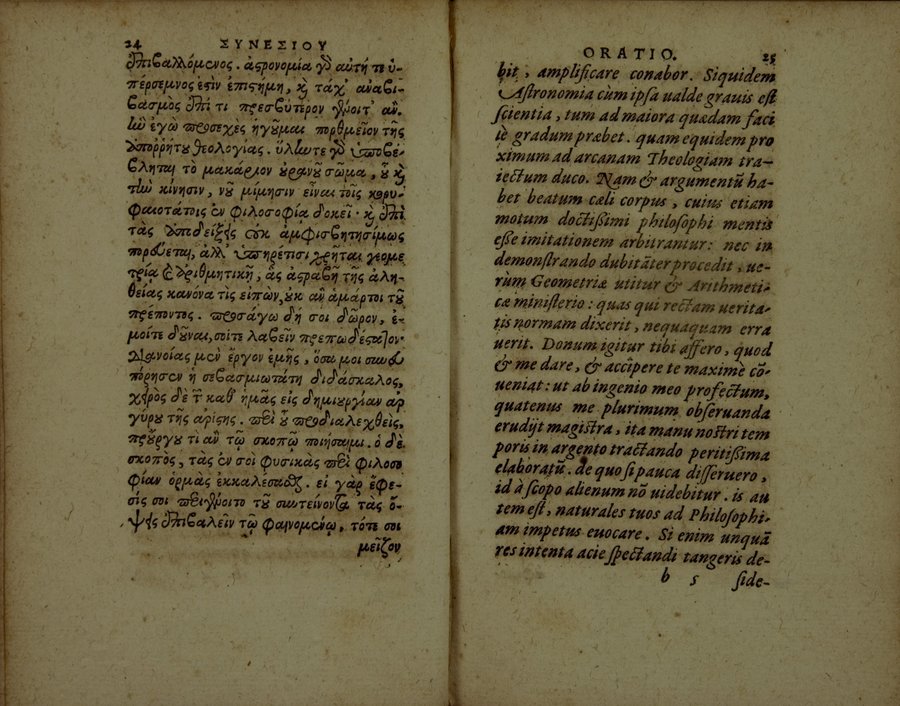 24 ΣΥΝΕΣΙΟΥ
ἐπιβαλλόμενος. ἀστρονομία γὸ αὐτή τε ὑ-
πέρσεμνος ἐστὶν ἐπιστήμη, κὶ τάχ' ἀναβι-
βασμὸς ἐπί τι πρεσβύτερον γένοιτ' ἄν.
ἣν ἐγὼ προσεχὲς ἡγοῦμαι πορθμεῖον τῆς
ἀπορρήτου θεολογίας. ὕλην τε γὸ ὑποβέ-
βληται τὸ μακάριον οὐρανοῦ σῶμα, οὗ κὶ
τὴν κίνησιν, νοῦ μίμησιν εἶναι τοῖς κορυ-
φαιοτάτοις ἐν φιλοσοφία δοκεῖ· κὶ ἐπὶ
τὰς ἀποδείξεις οὐκ ἀμφισβητησίμως
πορεύεται, ἀλλ' ὑπηρέτισι χρῆται γεωμε
τρία κὶ ἀριθμητικῇ, ἃς ἀστραβῆ τῆς ἀλη-
θείας κανόνα τὶς εἰπὼν, οὐκ ἂν ἁμάρτοι τοῦ
πρέποντος. προσάγω δή σοι δῶρον, ἐ-
μοίτε δοῦναι, σοίτε λαβεῖν πρεπωδέστατον·
διανοίας μὲν ἔργον ἐμῆς, ὅσα μοι συνε
πόρησεν ἡ σεβασμιωτάτη διδάσκαλος,
χειρὸς δὲ τ καθ' ἡμᾶς εἰς δημιουργίαν ἀρ
γύρου τῆς ἀρίστης. περὶ οὗ προδιαλεχθεὶς,
προὔργου τὶ ἂν τῷ σκοπῷ ποιήσαιμι. ὁ δὲ
σκοπὸς, τὰς ἐν σοὶ φυσικὰς περὶ φιλοσο
φίαν ὁρμὰς ἐκκαλέσασθαι. εἰ γὰρ ἔφε-
σίς σοι περιγένοιτο τοῦ συντείνοντα τὰς ὄ-
ψεις ἐπιβαλεῖν τῷ φαινομένῳ, τότε σοι
μεῖζον
ORATIO. 25
bit, amplificare conabor. Siquidem
Astronomia cùm ipsa ualde grauis est
scientia, tum ad maiora quædam faci
lè gradum præbet. quam equidem pro
ximum ad arcanam Theologiam tra-
iectum duco. Nam & argumentū ha-
bet beatum cæli corpus, cuius etiam
motum doctißimi philosophi mentis
eße imitationem arbitrantur: nec in
demonstrando dubitāter procedit, ue-
rùm Geometriæ utitur & Arithmeti-
cæ ministerio: quas qui rectam uerita-
tis normam dixerit, nequaquam erra
uerit. Donum igitur tibi affero, quod
& me dare, & accipere te maximè cō-
ueniat: ut ab ingenio meo profectum,
quatenus me plurimum obseruanda
erudijt magistra, ita manu nostri tem
poris in argento tractando peritißima
elaboratū. de quo si pauca disseruero,
id à scopo alienum nō uidebitur. is au
tem est, naturales tuos ad Philosophi-
am impetus euocare. Si enim unquā
res intenta acie spectandi tangeris de-
b 5 side-